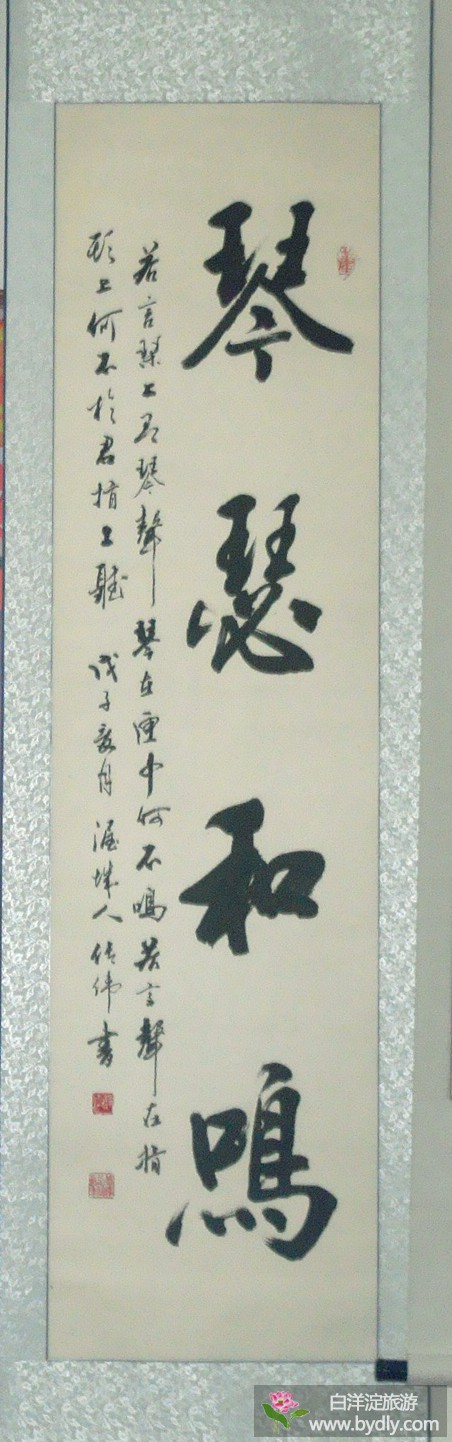 琴瑟和鳴
若言琴上有琴聲琴在匣中何不鳴若言聲在指
頭上何不於君指上聽 戊子
人
書
白洋淀旅游
www.bydly.com